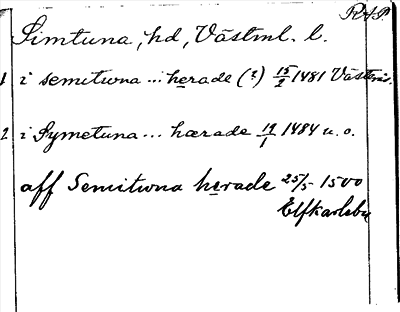 RAP
Simtuna, hd, Västml. l.
1 i semituna ... herade (?) 15/2 1481 Västerås.
2 i Symetuna ... hærade 19/1 1484 u. o.
aff Semituna herade 25/5 1500
Elfkarleby